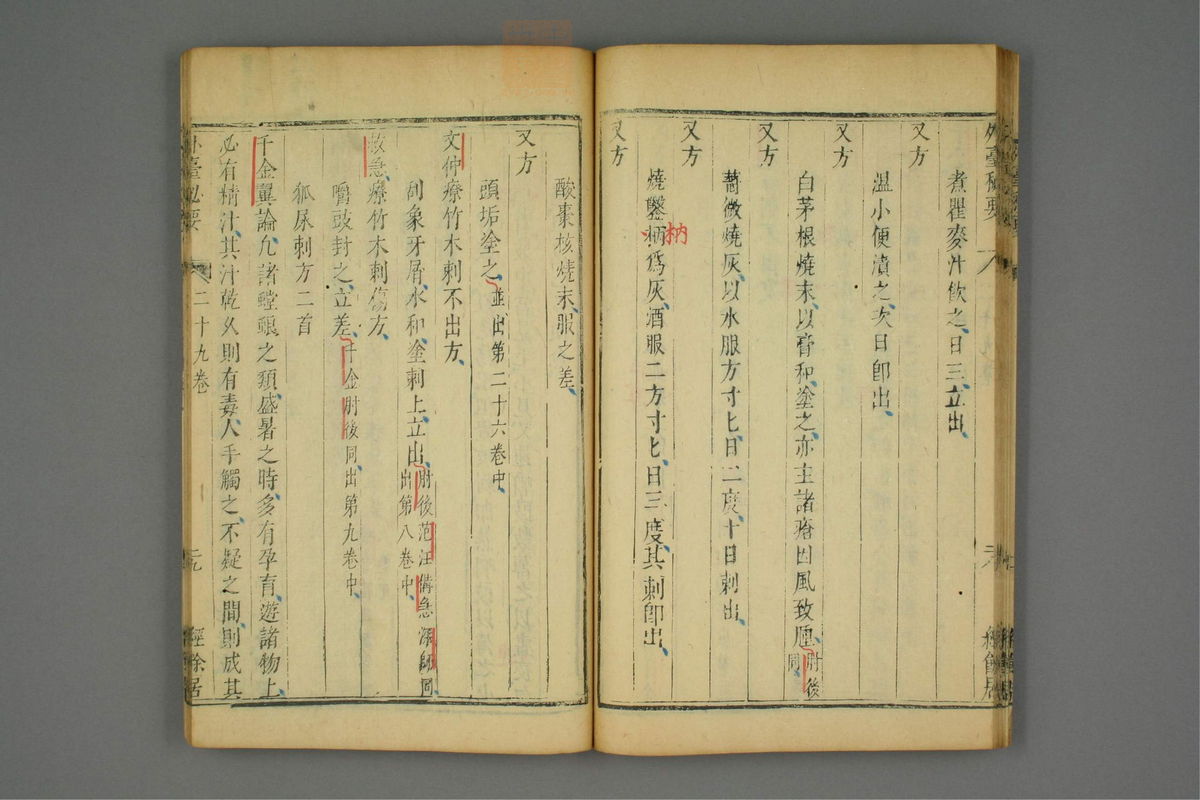 煮瞿麥汁飲之日三立出
又方
溫小便漬之次日卽出
又方
白茅根燒末以膏和塗之亦主諸瘡因風致腫肘後同
又方
薔薇燒灰以水服方寸匕日二度十日刺出
又方
燒鑿柄爲灰酒服二方寸匕日三度其刺卽出
枘
又方
酸棗核燒末服之差
又方
頭垢塗之並出第二十六卷中
文仲療竹木刺不出方
刮象牙屑水和塗刺上立出肘後范汪備急深師同
出第八卷中
救急療竹木刺傷方
嚼豉封之立差千金肘後同出第九卷中
狐尿刺方二首
千金翼論允諸螳螂之類盛暑之時多有孕育遊諸物上
必有精汁其汁乾久則有毒人手觸之不疑之間則成其
外臺秘要
二十九卷
經餘居